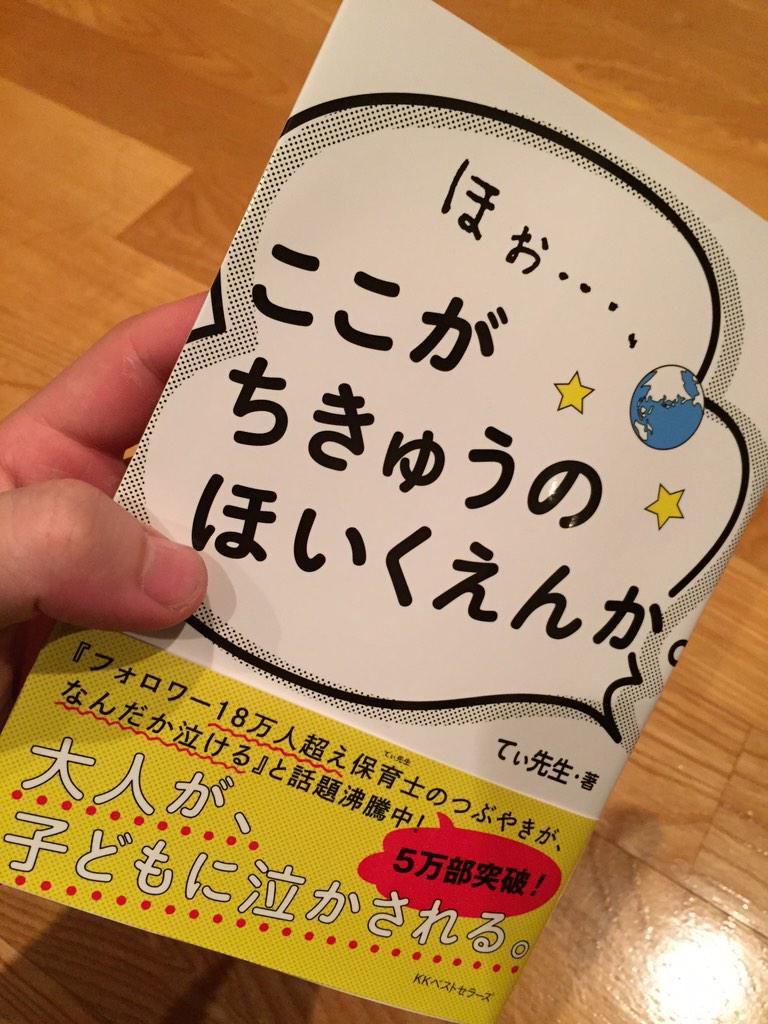 ほぉ‥‥、
ここが
ちきゅうの
ほいくえんか。
てぃ先生・著
『フォロワー18万人超え保育士のつぶやきが、
てぃ先生
なんだか泣ける』と話題沸騰中!
大人が、
子どもに泣かされる。
5万部突破!
KKベストセラーズ